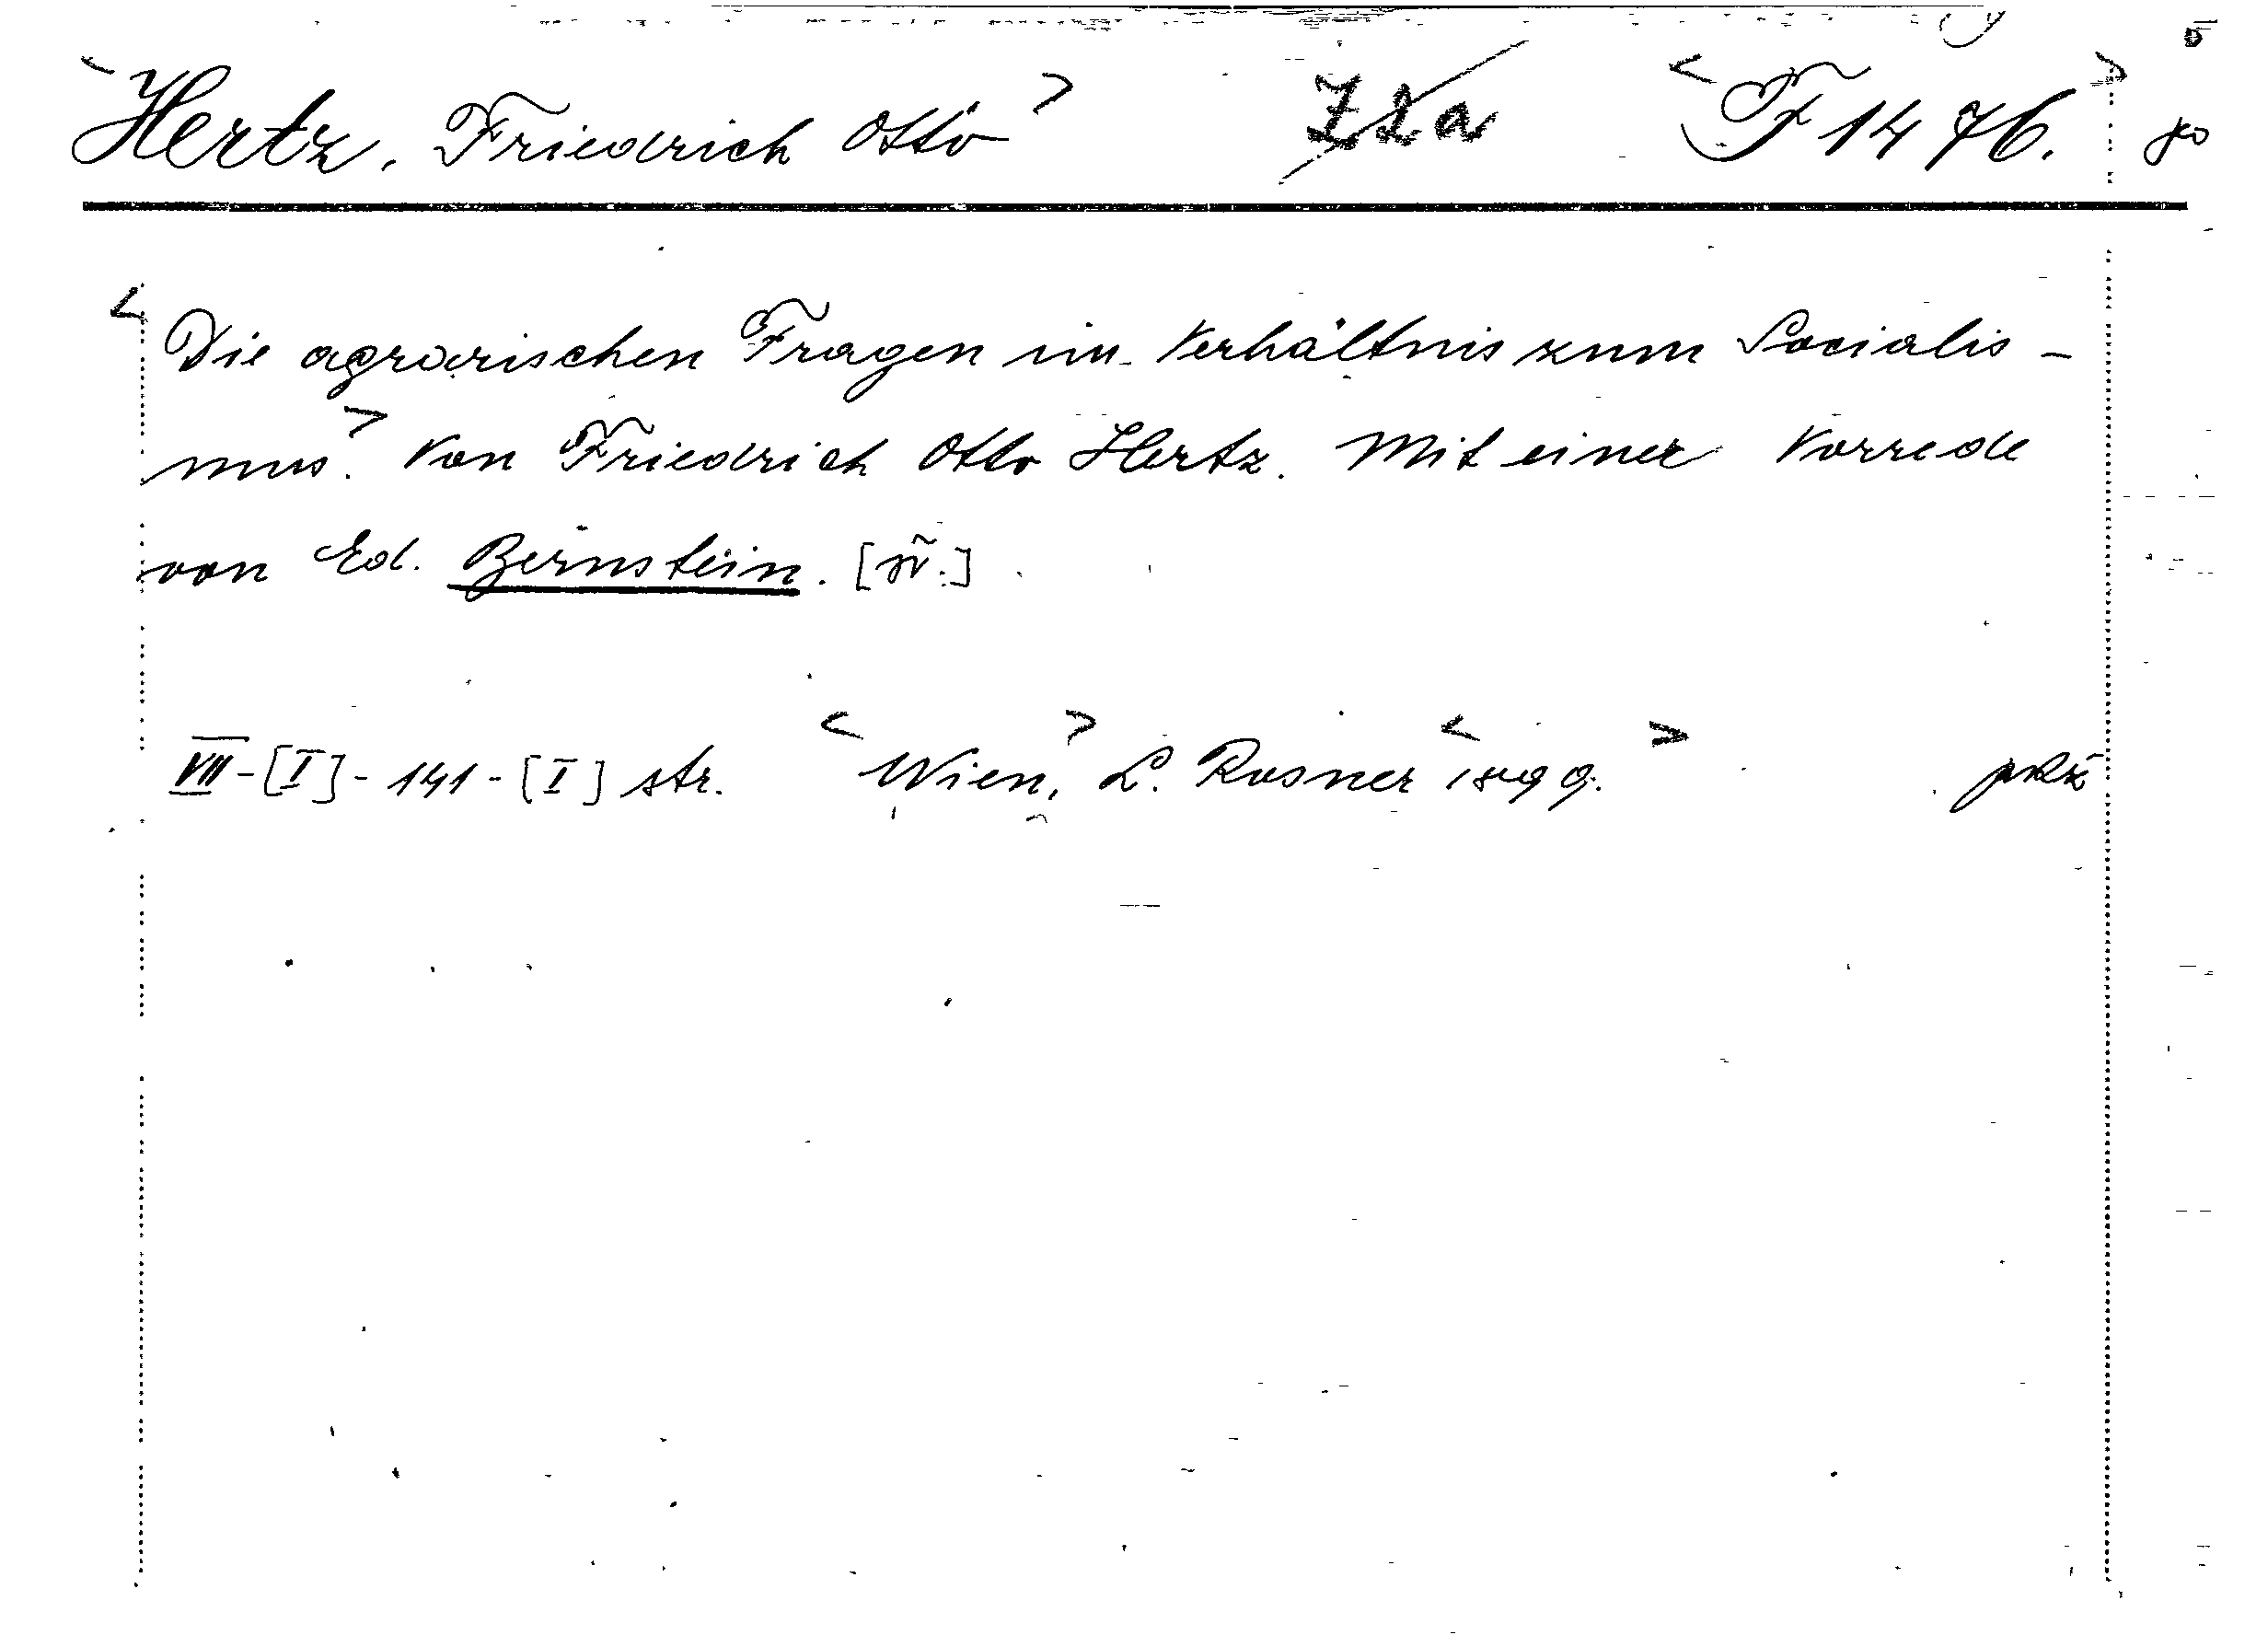 <Hertz, Friedrich Otto> Z2a <F 1476.>
<Die agrarischen Fragen im Verhältnis zum Socialis-
mus>. Von Friedrich Otto Hertz. Mit einer Vorrede
von Ed. Bernstein.
VIII-[I]-141-[I] str. <Wien,> L. Rosner <1899.>